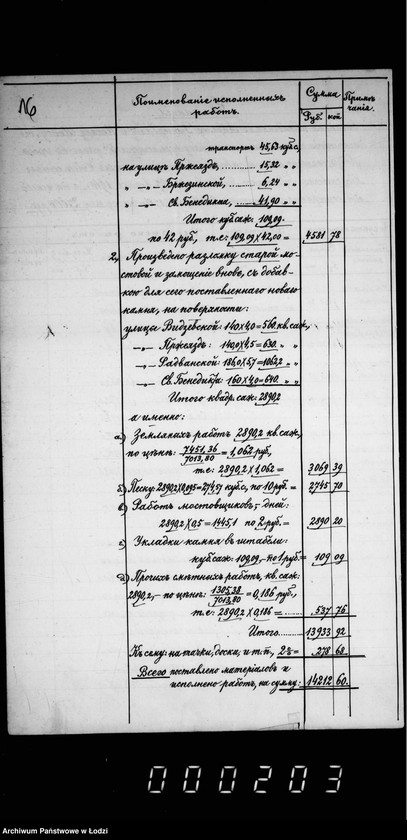 № Поименованіе исполненныхъ работъ. Сумма Примѣчанія.
Руб. коп.
транспортъ 45,63 куб.с,
на улицѣ Пржеяздъ, ........ 15,32 " "
" —„— Бржезинской, ........ 6,24 " "
" —„— Св. Бенедикта, ........ 41,90 " "
Итого куб. саж. 109,09.
по 42 руб, т.е: 109,09 x 42,00 = 4581 78
2, Произведено разломку старой мо-
стовой и замощеніе вновь, съ добав-
кою для сего поставленнаго новаго
камня, на поверхности:
улица Видзевской: 140 x 4,0 = 560, кв. саж,
—„— Пржеяздъ: 140,0 x 4,5 = 630. " "
—„— Радванской: 186,0 x 5,7 = 1060,2 " "
—„— Св. Бенедикта 160 x 4,0 = 640. " "
Итого квадр. саж. 2890,2
а именно:
а) Земляныхъ работъ 2890,2 кв. саж,
по цѣнѣ: 7451,36 / 7013,80 = 1,062 руб,
т.е: 2890,2 x 1,062 = 3069 39
б) Песку: 2890,2 x 0,095 = 274,57 куб.с, по 10 руб. = 2745 70
в) Работъ мостовщиковъ, – дней:
2890,2 x 0,5 = 1445,1 по 2 руб. = 2890 20
г) Укладки камня въ штабели:
куб. саж: 109,09, – по 1 руб. = 109 09
д) Прочихъ смѣтныхъ работъ, кв. саж:
2890,2, – по цѣнѣ: 1305,38 / 7013,80 = 0,186 руб,
т.е: 2890,2 x 0,186 = ........ 537 76
Итого ........ 13933 92
Къ сему: на тачки, доски, и т.п., 2% = 278 68
Всего поставлено матеріаловъ и
исполнено работъ, на сумму: 14212 60.
000203
Archiwum Państwowe w Łodzi